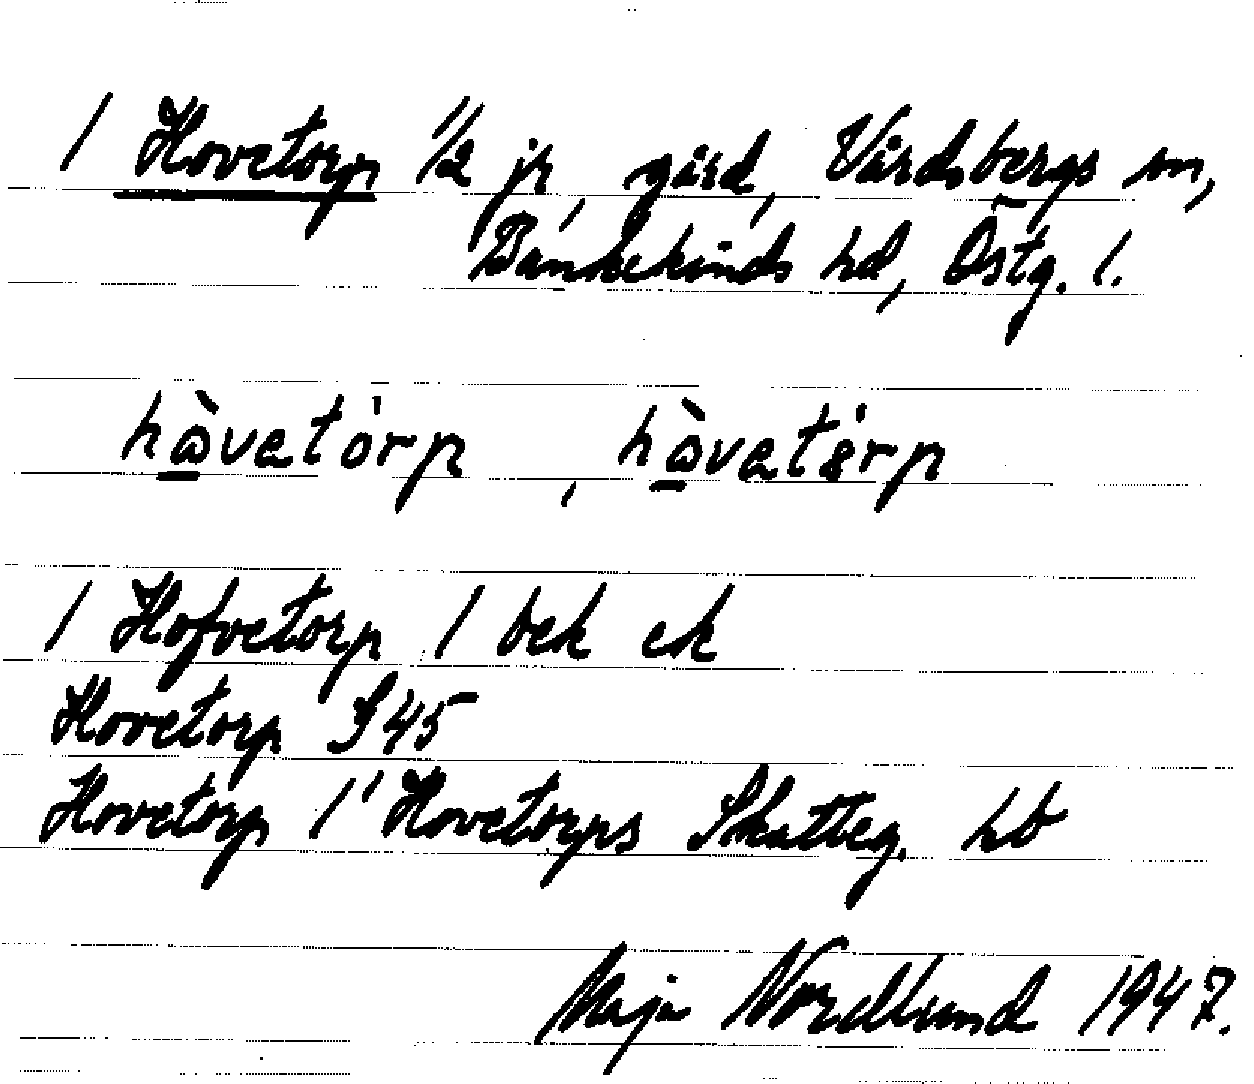 / Hovetorp 1/2 jr, gård, Vårdsbergs sn,
Bankekinds hd, Östg. l.
hàvetórp, hàvetórp
/ Hofvetorp / bek ek
Hovetorp S 45
Hovetorp /' Hovetorps Skatteg. hb
Maja Nordlund 1947.